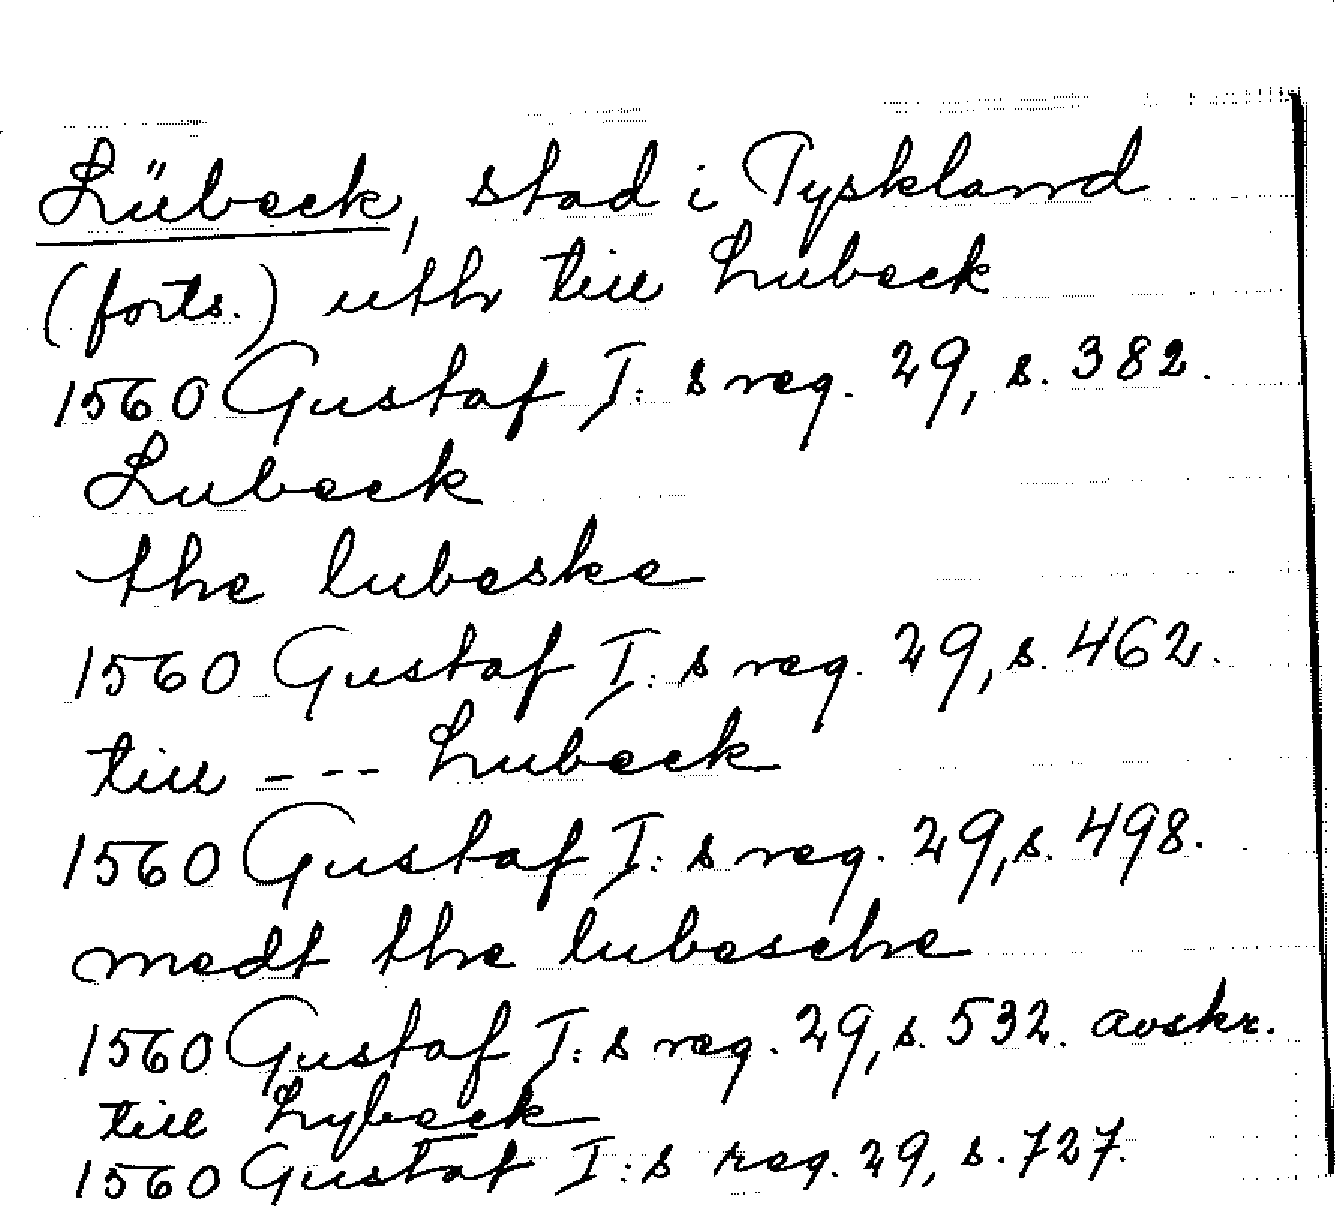 Lübeck, stad i Tyskland
(forts.) uthr till Lubeck
1560 Gustaf I:s reg. 29, s. 382.
Lubeck
the lubeske
1560 Gustaf I:s reg. 29, s. 462.
till --- Lubeck
1560 Gustaf I:s reg. 29, s. 498.
medt the lubesche
1560 Gustaf I:s reg. 29, s. 532. avskr.
till Lybeck
1560 Gustaf I:s reg. 29, s. 727.